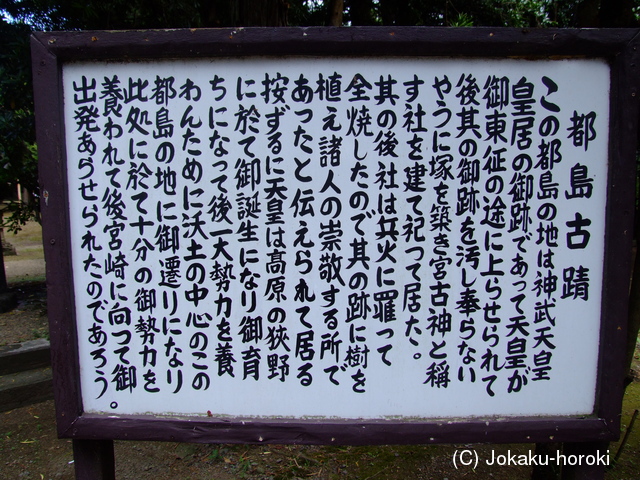 都島古蹟
この都島の地は神武天皇
皇居の御跡であって天皇が
御東征の途に上らせられて
後其の御跡を汚し奉らない
やうに塚を築き宮古神と稱
す社を建て祀って居た。
其の後社は兵火に罹って
全焼したので其の跡に樹を
植え諸人の崇敬する所で
あったと伝えられて居る
按ずるに天皇は高原の狹野
に於て御誕生になり御育
ちになって後一大勢力を養
わんために沃土の中心のこの
都島の地に御遷りになり
此処に於て十分の御勢力を
養われて後宮崎に向って御
出発あらせられたのであろう。
(C) Jokaku-horoki